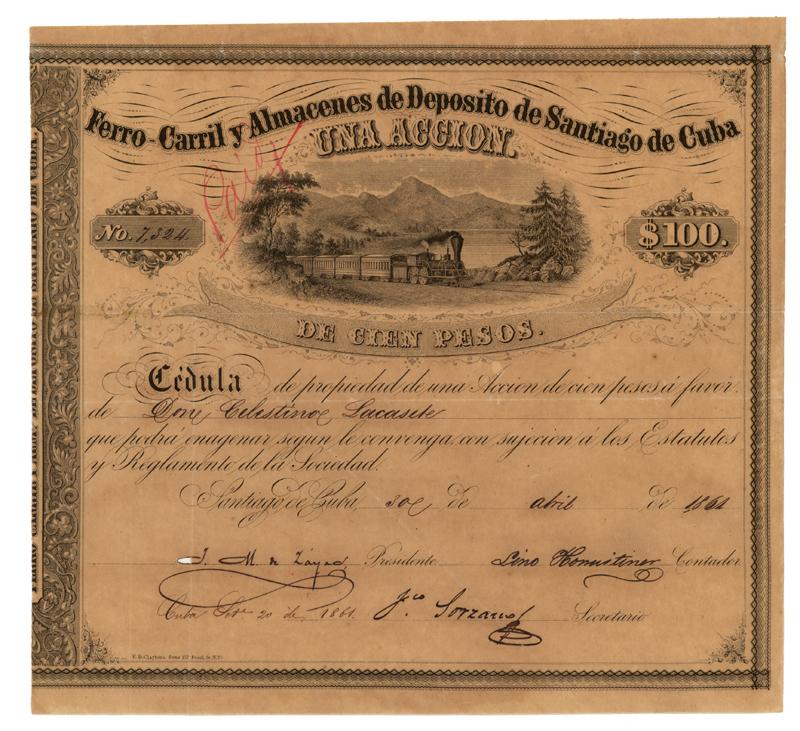 Ferro-Carril y Almacenes de Deposito de Santiago de Cuba
UNA ACCION.
Paid
No. 7,324
$100.
DE CIEN PESOS.
Cédula de propiedad de una Accion de cien pesos á favor
de Don Celestino
que podrá enagenar segun le convenga, con sujecion á los Estatutos
y Reglamento de la Sociedad.
Santiago de Cuba, 30 de abril de 1861
J. M. de Zayas Presidente Lino Contador
Cuba 20 de 1861. Fco Sorzano Secretario